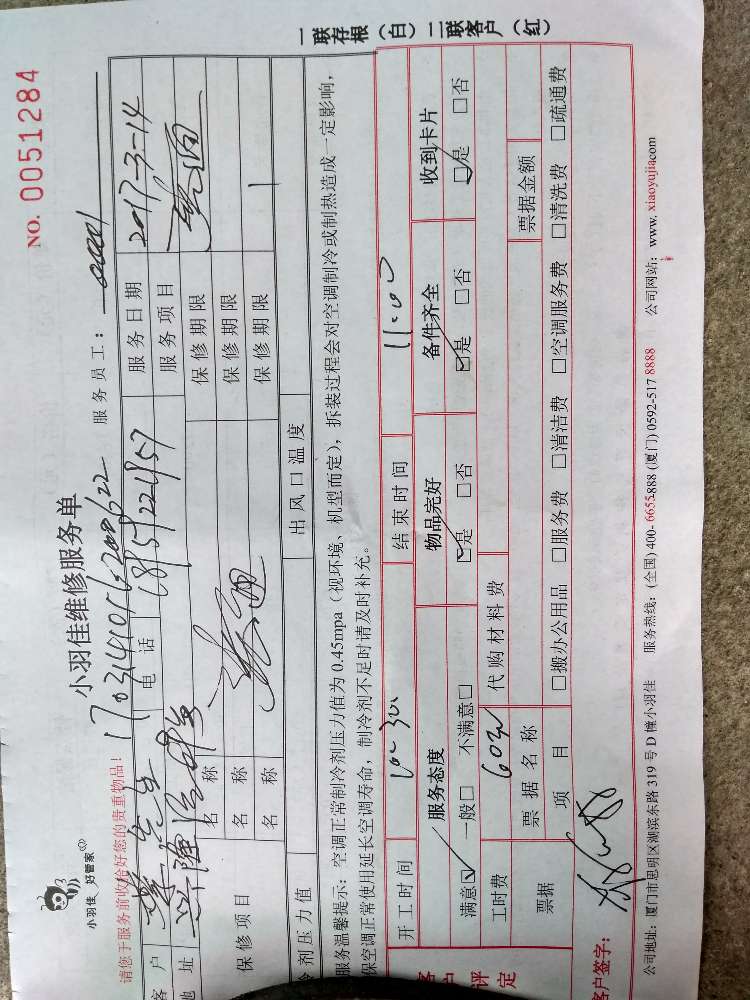 一联存根（白）二联客户（红）
NO. 0051284
小羽佳 好管家
小羽佳维修服务单
请您于服务前收拾好您的贵重物品！
服务员工：
客户 先生 电话 服务日期 2017-3-14
地址 服务项目
保修项目 名称 保修期限
名称 保修期限
名称 保修期限
冷剂压力值 出风口温度
服务温馨提示：空调正常制冷剂压力值为 0.45mpa（视环境、机型而定），拆装过程会对空调制冷或制热造成一定影响，
保空调正常使用延长空调寿命，制冷剂不足时请及时补充。
开工时间 10:30 结束时间 11:00
客户评定 服务态度 物品完好 备件齐全 收到卡片
满意☑ 一般□ 不满意□ ☑是 □否 ☑是 □否 ☑是 □否
工时费 60元 代购材料费
票据 票据名称 票据金额
项目 □搬办公用品 □服务费 □清洁费 □空调服务费 □清洗费 □疏通费
客户签字：
公司地址：厦门市思明区湖滨东路 319 号 D 幢小羽佳 服务热线：(全国) 400- 6655-888 (厦门) 0592-517 8888 公司网站：www. xiaoyujia.com